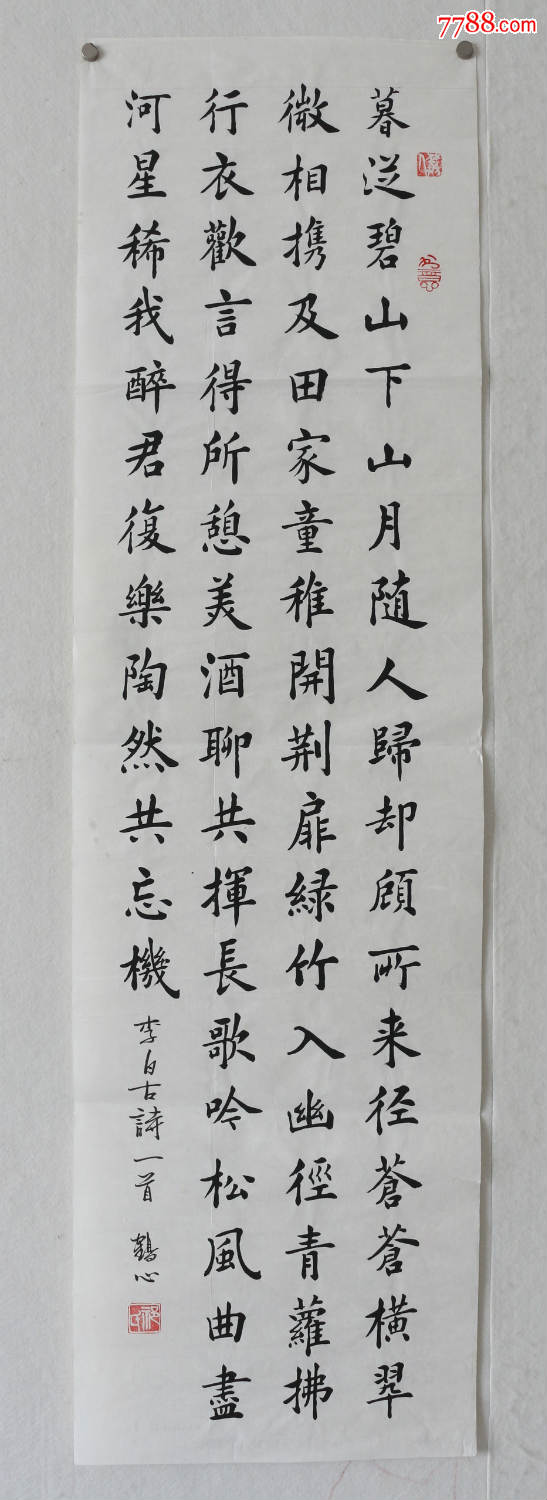 7788.com
暮迳碧山下山月随人歸却顧所来径蒼蒼橫翠
微相携及田家童稚開荆扉緑竹入幽徑青蘿拂
行衣歡言得所憩美酒聊共揮長歌吟松風曲盡
河星稀我醉君復樂陶然共忘機
李白古詩一首
鶴心